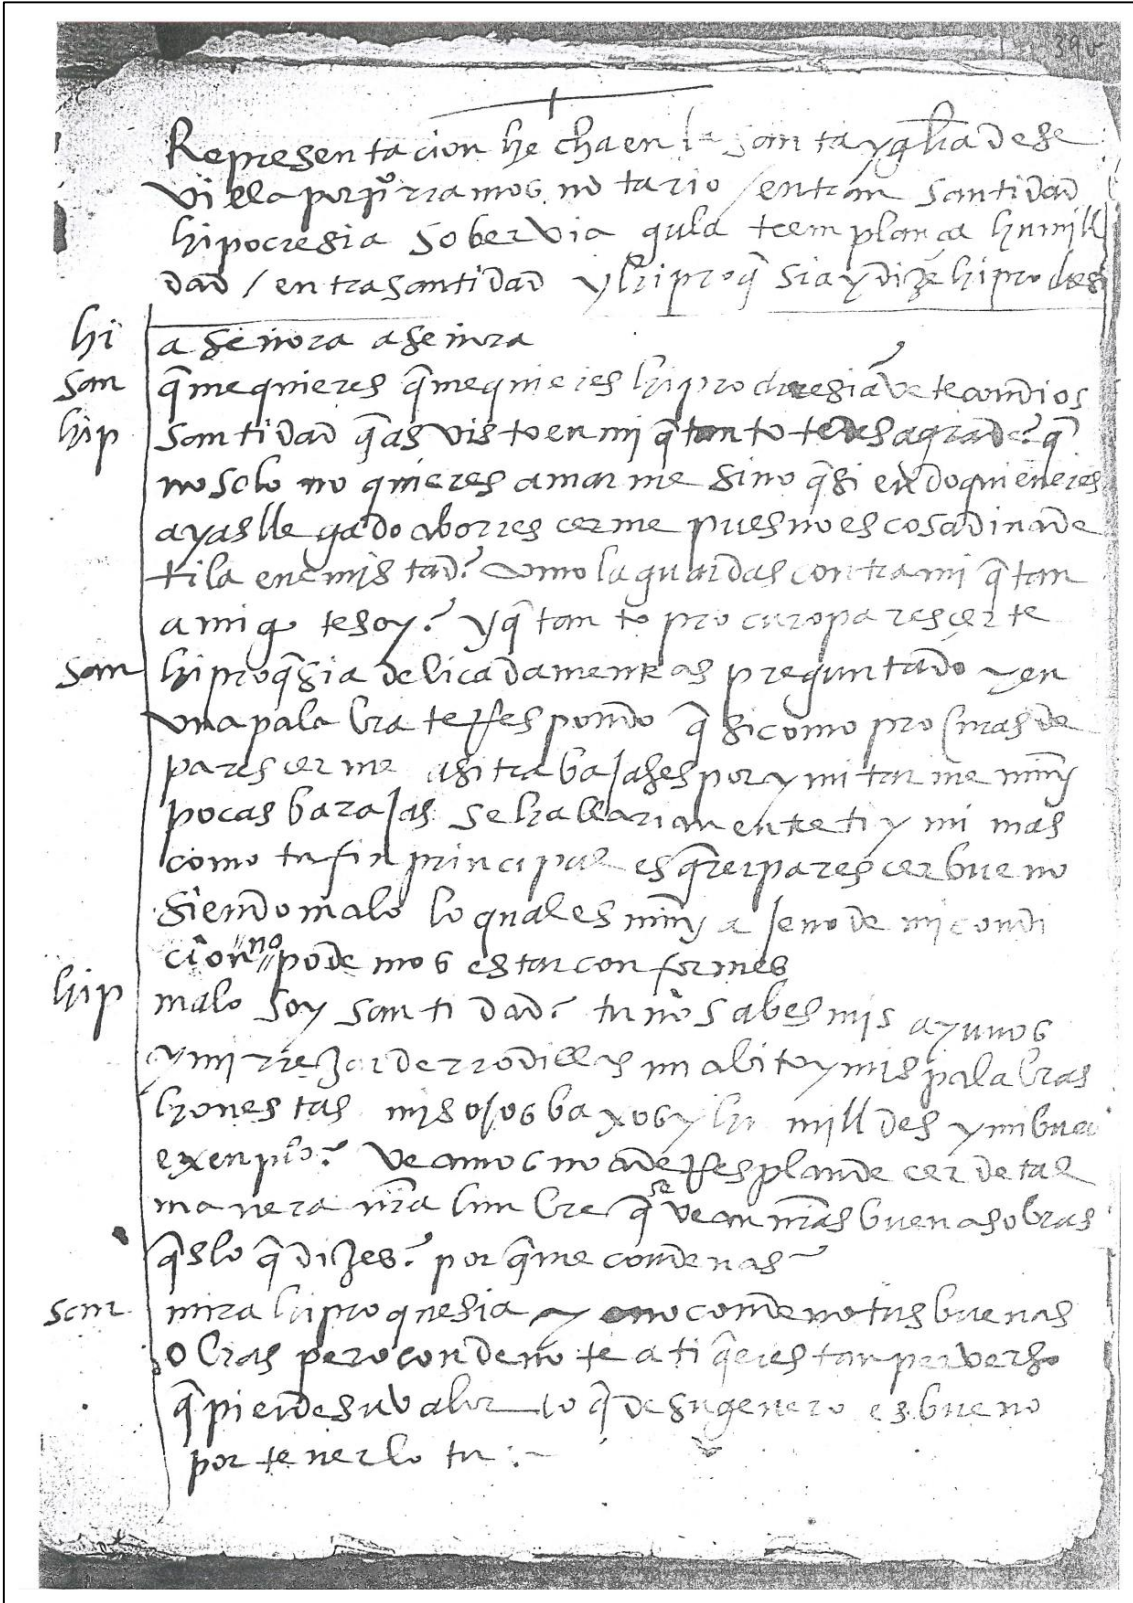 39v
Representacion hecha en la santa ygľia de se
villa por pº rramos notario / entran santidad
hipocresia sobervia gula teemplança humill
dad / entra santidad y hiproq̃sia y dize hipro
hi a señora a señora
san q̃ me quieres q̃ me quieres hiprocresia vete con dios
hip santidad q̃ as visto en mi q̃ tanto te desagrade? q̃
no solo no quieres amarme sino q̃ siendo quien eres
ayas llegado aborrescerme pues no es cosa dina de
ti la enemistad? como la guardas contra mi q̃ tan
amigo te soy? y q̃ tanto procuro parescerte
san hiproq̃sia delicadamente as preguntado y en
una palabra te rrespondo q̃ si como procuras de
parescerme asi trabajases por ymitarme muy
pocas barajas se hallarian entre ti y mi mas
como tu fin principal es q̃rer parescer bueno
siendo malo lo qual es muy ajeno de mi condi
cion no podemos estar conformes
hip malo soy santidad? tu no sabes mis ayunos
y mi rrezar de rrodillas mi abito y mis palabras
honestas mis ojos baxos y humilldes y mi buen
exenplo? veamos no a de rresplandecer de tal
manera nr̃a lumbre q̃ se vean nr̃as buenas obras
q̃s lo q̃ dizes? por q̃ me condenas
san mira hiproquesia yo no condeno tus buenas
obras pero condenote a ti q̃ eres tan perverso
q̃ pierde su valor lo q̃ de su genero es bueno
por tenerlo tu :~